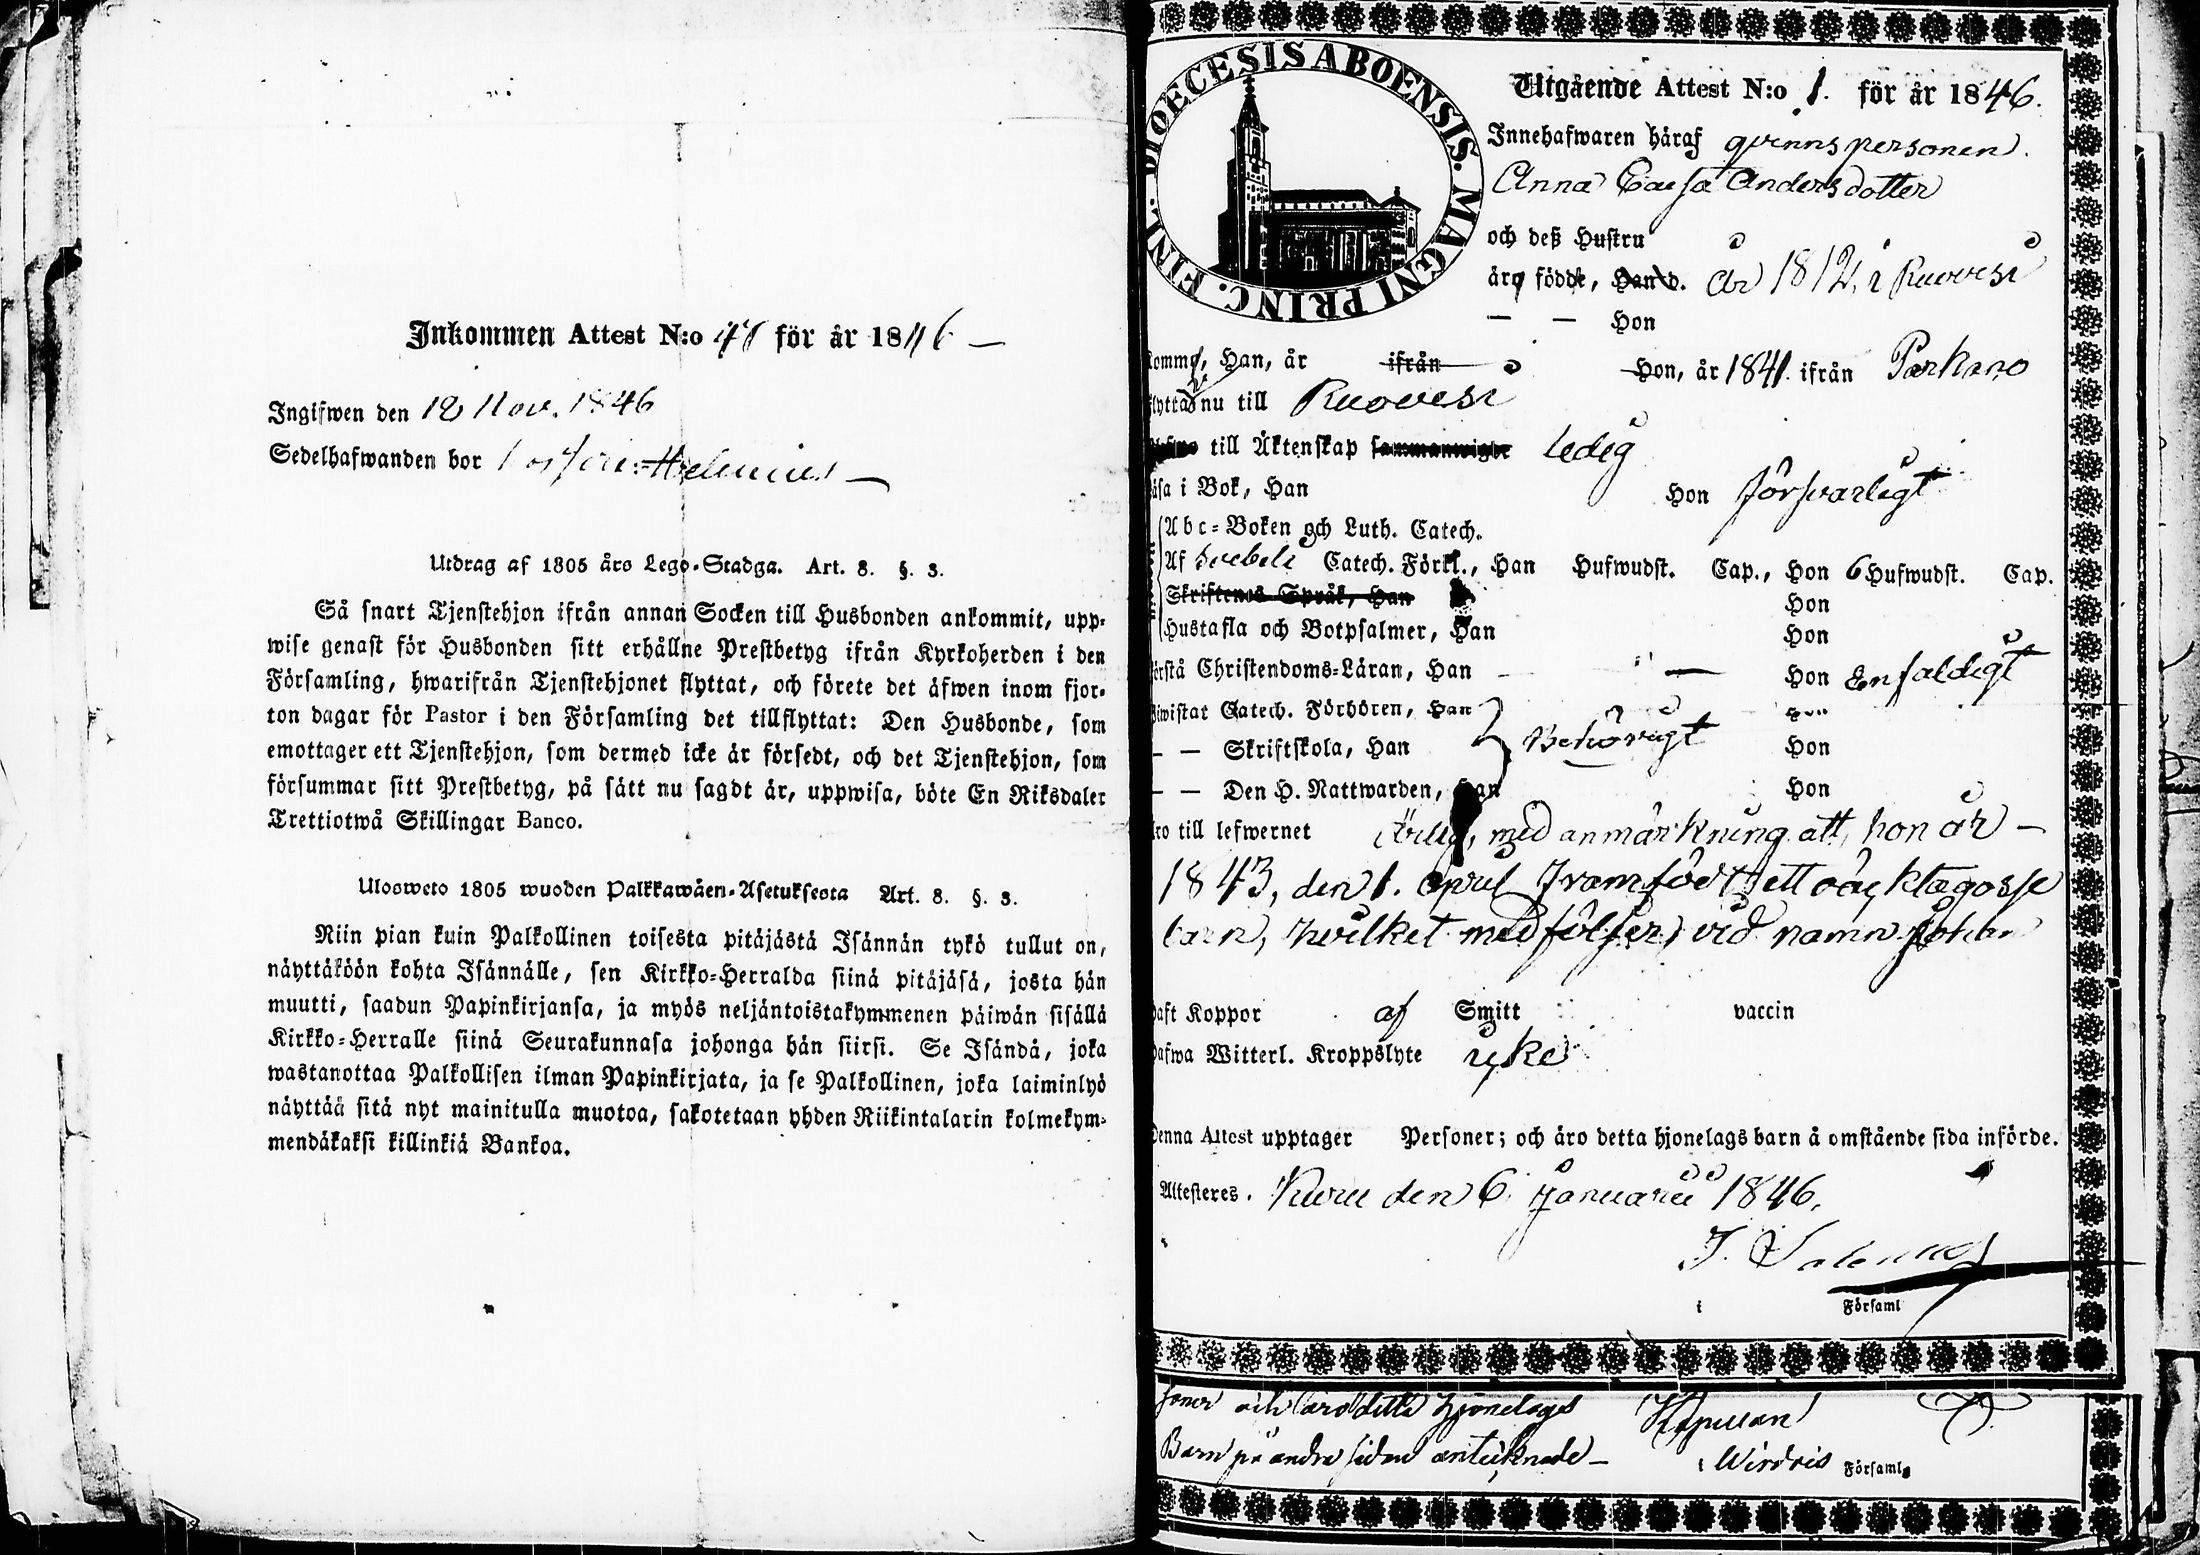 Inkommen Attest N:o 47 för år 1846
Ingifwen den 12 Nov. 1846
Sedelhafwanden bor
Utdrag af 1805 års Lego-Stadga. Art. 8. §. 3.
Så snart Tjenstehjon ifrån annan Socken till Husbonden ankommit, upp-
wise genast för Husbonden sitt erhållne Prestbetyg ifrån Kyrkoherden i den
Församling, hwarifrån Tjenstehjonet flyttat, och förete det äfwen inom fjor-
ton dagar för Pastor i den Församling det tillflyttat: Den Husbonde, som
emottager ett Tjenstehjon, som dermed icke är försedt, och det Tjenstehjon, som
försummar sitt Prestbetyg, på sätt nu sagdt är, uppwisa, böte En Riksdaler
Trettiotwå Skillingar Banco.
Ulosweto 1805 wuoden Palkkawäen-Asetuksesta Art. 8. §. 3.
Niin pian kuin Palkollinen toisesta pitäjästä Isännän tykö tullut on,
näyttäköön kohta Isännälle, sen Kirkko-Herralda siinä pitäjäsä, josta hän
muutti, saadun Papinkirjansa, ja myös neljäntoistakymmenen päiwän sisällä
Kirkko-Herralle siinä Seurakunnasa johonga hän siirsi. Se Isändä, joka
wastanottaa Palkollisen ilman Papinkirjata, ja se Palkollinen, joka laiminlyö
näyttää sitä nyt mainitulla muotoa, sakotetaan yhden Riikintalarin kolmekym-
mendäkaksi killinkiä Bankoa.
DIOECESIS ABOENSIS. MAGNI PRINC. FINL.
Utgående Attest N:o 1. för år 1846.
Innehafwaren häraf qvinnspersonen.
Anna Caisa Andersdotter
och deß Hustru
äro födde, Han d. År 1812, i Ruovesi
— — Hon
Han, år ifrån Hon, år 1841. ifrån Parkano
nu till Ruovesi
till Äktenskap ledig
i Bok, Han Hon försvarligt
Abc-Boken och Luth. Catech.
Af Svebeli Catech. Förkl., Han Hufwudst. Cap., Hon 6 Hufwudst. Cap.
Skriftenes Språk, Han Hon
Hustafla och Botpsalmer, Han Hon
Christendoms-Läran, Han — — Hon Enfaldigt
Catech. Förhören, Han Hon
— — Skriftskola, Han Behörigt Hon
— — Den H. Nattwarden, Han Hon
till lefwernet Ärlig, med anmärkning att, hon är —
1843, den 1. april framfödt ett oäckta gosse
barn, hvilket medföljer, vid namn Johan
Koppor af Smitt vaccin
Witterl. Kroppslyte icke
Denna Attest upptager Personer; och äro detta hjonelags barn å omstående sida införde.
Attesteres. Kuru den 6. Januarii 1846.
i Församl
soner och äro detta hjonelags
Barn på andra sidan antecknade — i Wirdois Församl.